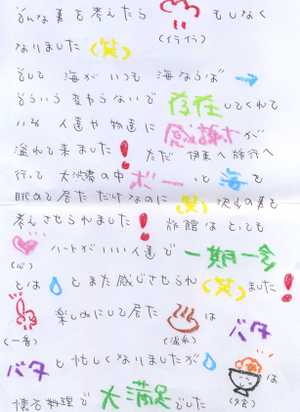 そんな事を考えたら もしなく
(イライラ)
なりました(笑)
そして 海が いつも 海ならば →
そういう 変わらないで 存在してくれて
いる 人達や 物達に 感謝が
溢れて来ました! ただ 伊東へ旅行へ
行って 大浴場の中 ボーッと海を
眺めて居ただけなのに(笑) 沢山の事を
考えさせられました! 旅館は とても
ハートがいい人達で 一期一会
(心)
とは と また感じさせられ(笑)ました!
楽しみにして居た は バタ
(一番) (温泉)
バタ と忙しくなりましたが は
(夕食)
懐石料理で 大満足でした